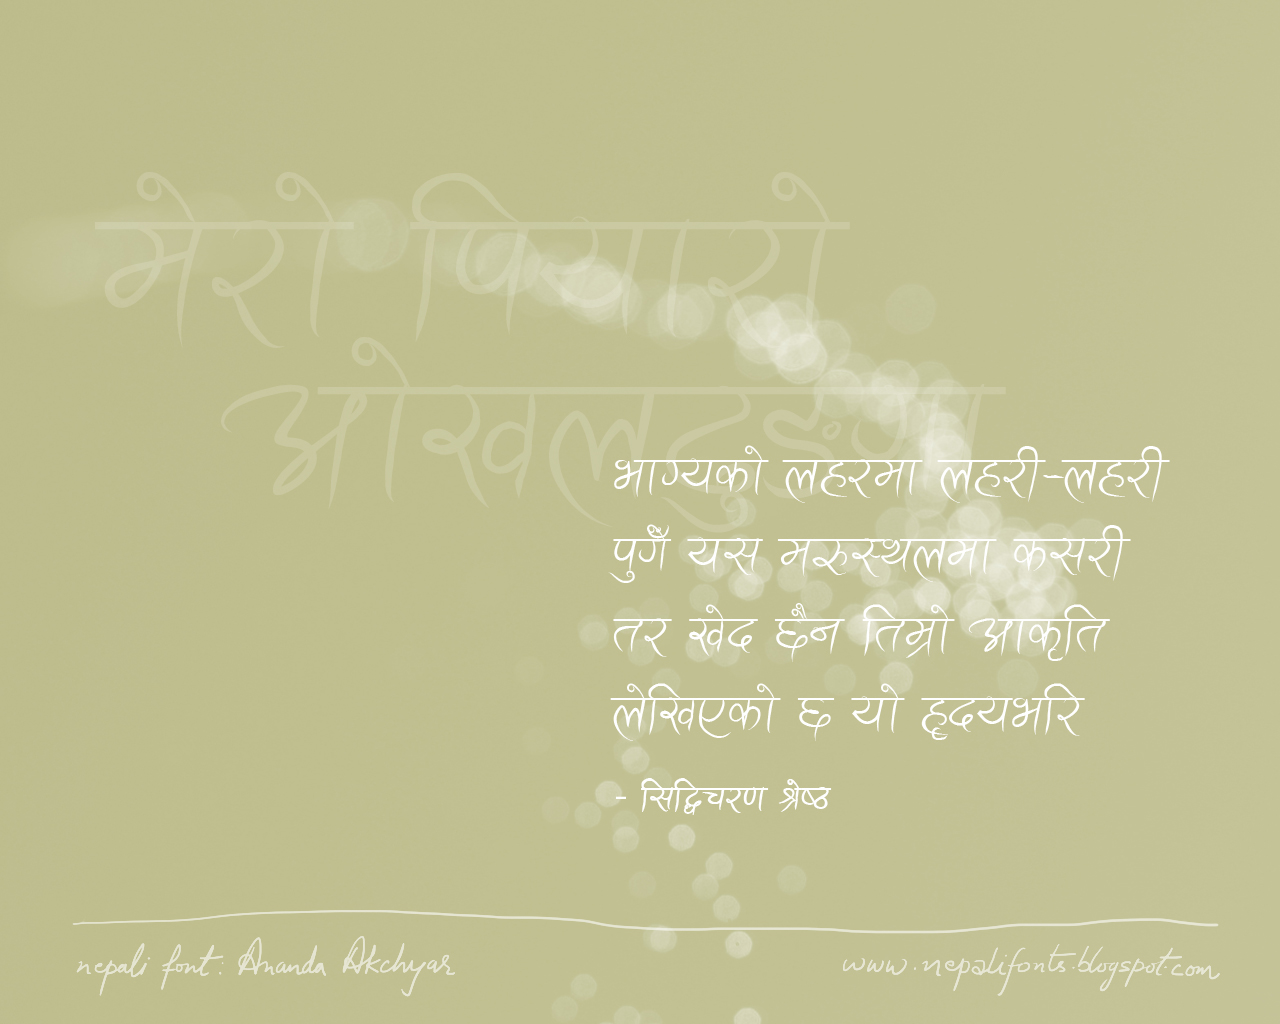 मेरो पियारो
ओखलढुङ्गा
भाग्यको लहरमा लहरी-लहरी
पुगेँ यस मरुस्थलमा कसरी
तर खेद छैन तिम्रो आकृति
लेखिएको छ यो हृदयभरि
- सिद्धिचरण श्रेष्ठ
nepali font: Ananda Akchyar
www.nepalifonts.blogspot.com